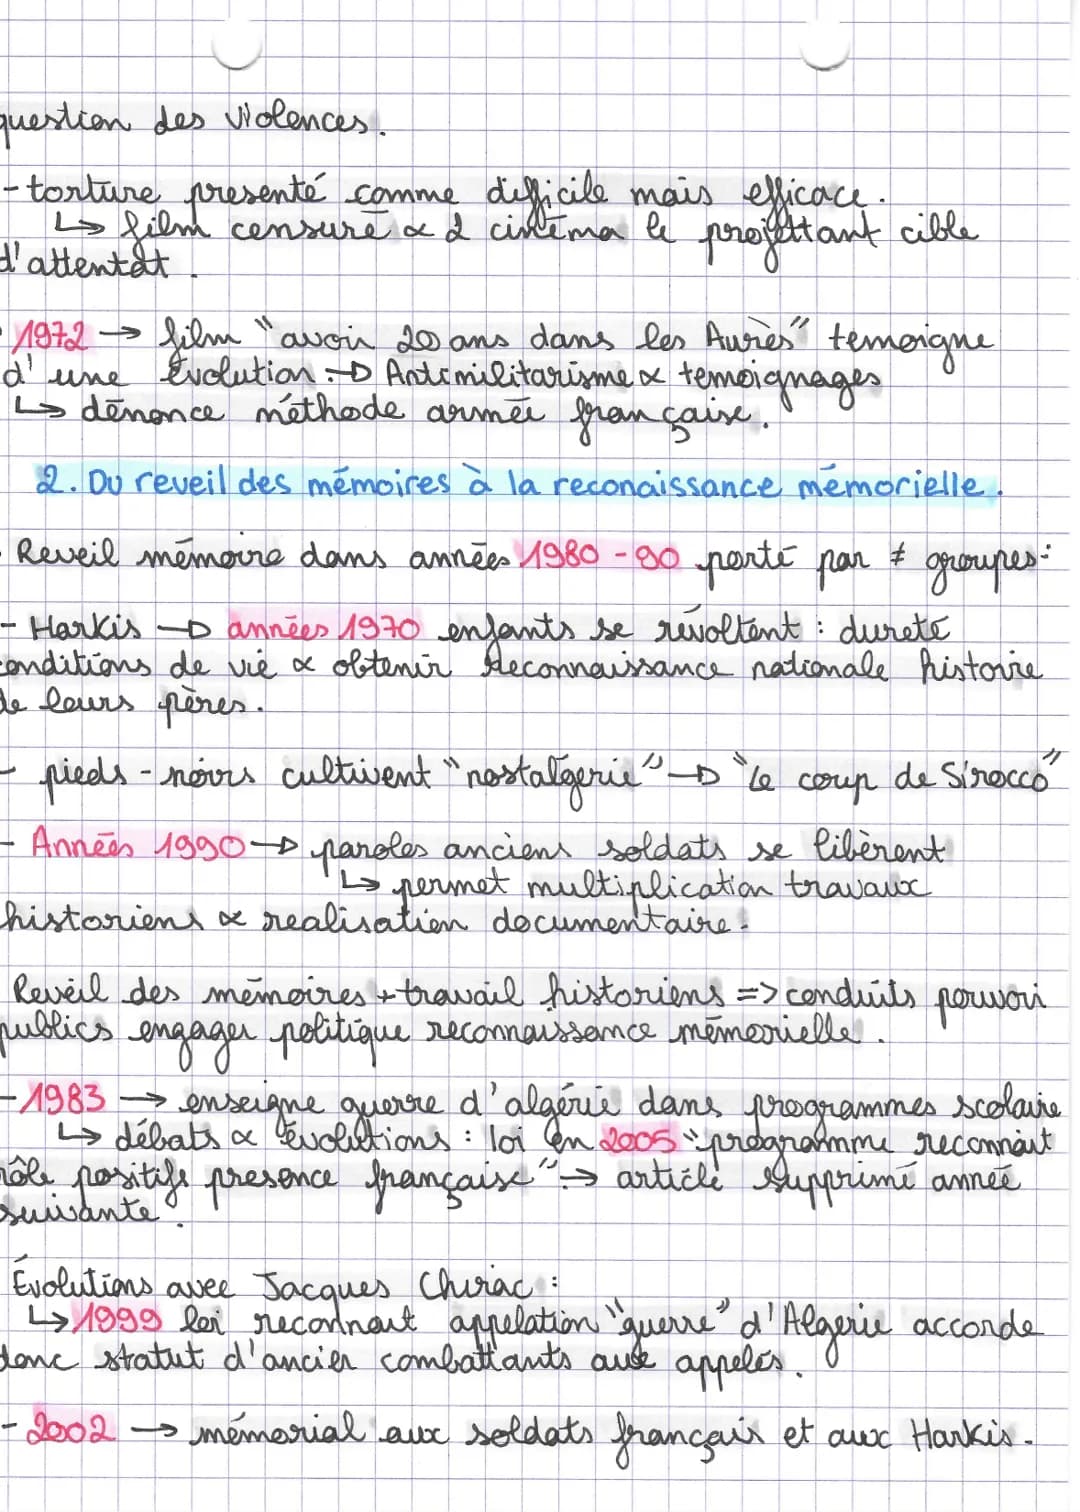 question des violences.
- torture presenté comme difficile mais efficace.
↳ film censuré & 2 cinéma le projettant cible
d'attentat.
- 1972 → film "avoir 20 ans dans les Aurès" temoigne
d'une évolution → Antimilitarisme & temoignages
↳ dénonce méthode armée française.
2. Du reveil des mémoires à la reconaissance mémorielle.
- Reveil mémoire dans années 1980-90 porté par ≠ groupes:
- Harkis → années 1970 enfants se révoltent : dureté
conditions de vie & obtenir reconnaissance nationale histoire
de leurs pères.
- pieds-noirs cultivent "nostalgerie" → "Le coup de Sirocco"
- Années 1990 → paroles anciens soldats se libèrent
↳ permet multiplication travaux
historiens & realisation documentaire.
Reveil des mémoires + travail historiens => conduits pouvoir
publics engager politique reconnaissance mémorielle.
- 1983 → enseigne guerre d'algérie dans programmes scolaire
↳ débats & évolutions : loi en 2005 "programme reconnait
rôle positifs presence française" → article supprimé année
suivante.
Évolutions avec Jacques Chirac :
↳ 1999 loi reconnait appelation "guerre" d'Algerie accorde
donc statut d'ancien combattants aux appelés.
- 2002 → mémorial aux soldats français et aux Harkis.